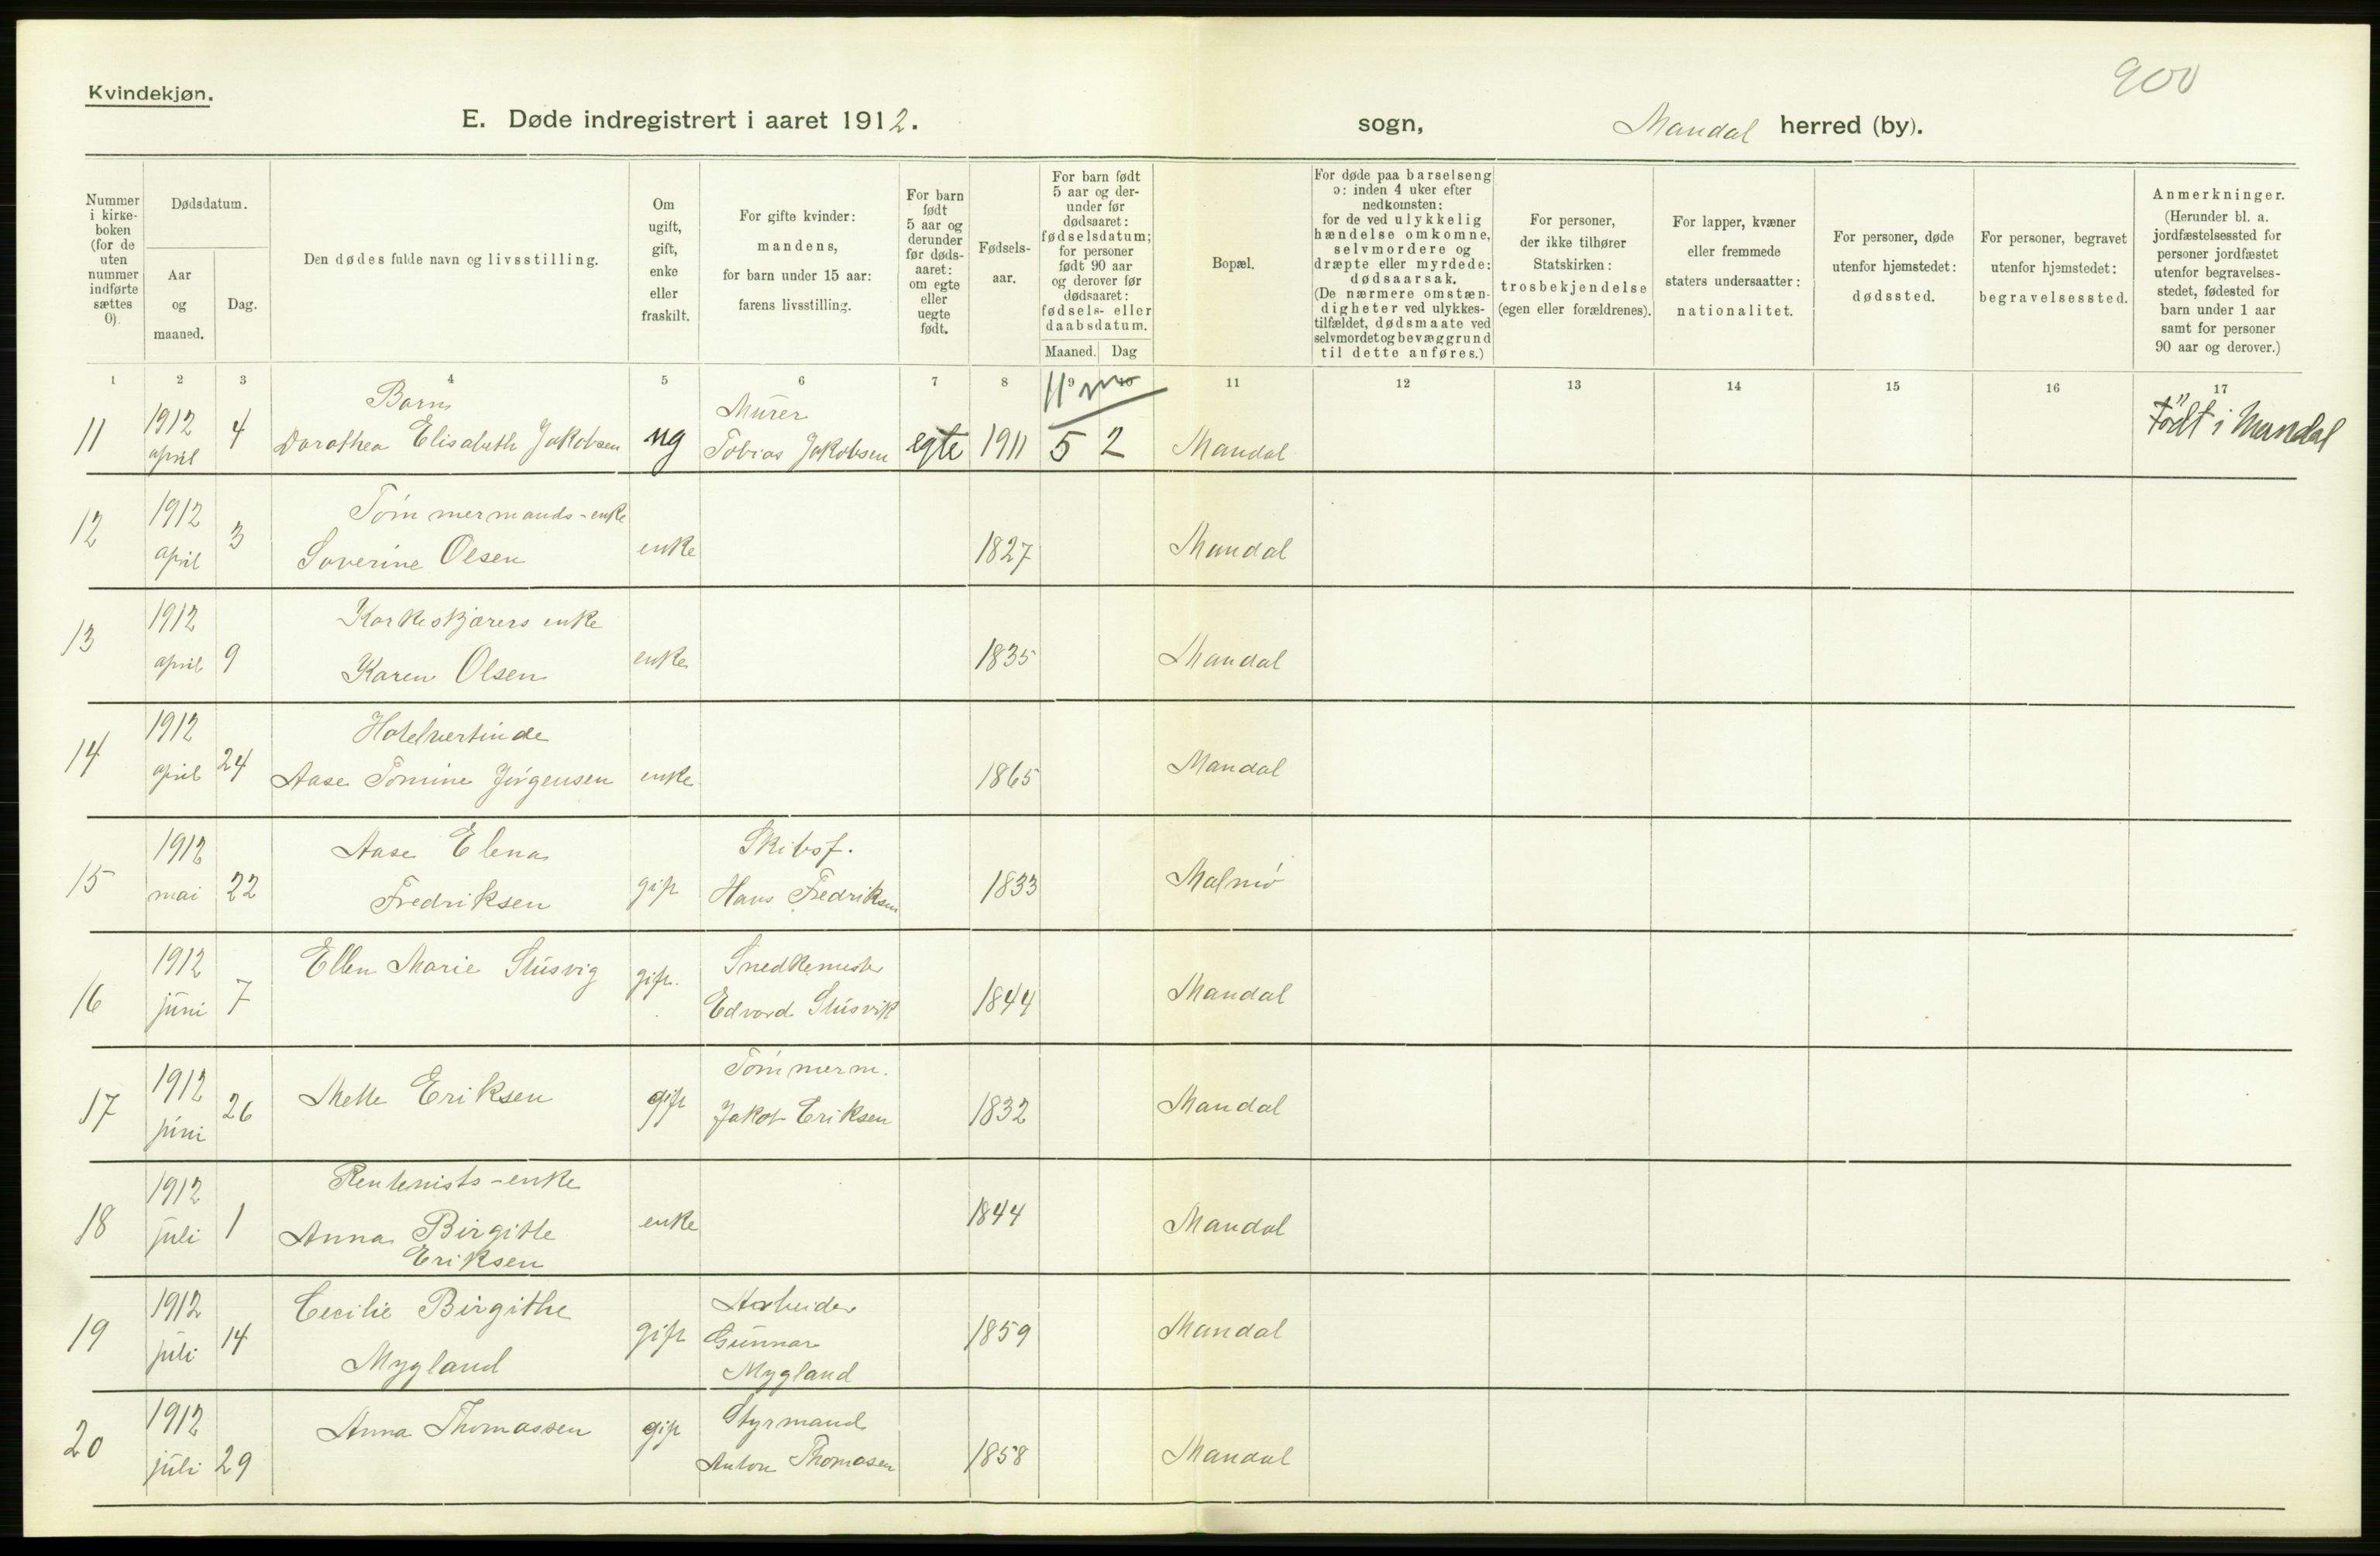 900
Kvindekjøn.
E. Døde indregistrert i aaret 1912. sogn, Mandal herred (by).
Nummer i kirke-boken (for de uten nummer indførte sættes 0).
Dødsdatum.
Aar og maaned.
Dag.
Den dødes fulde navn og livsstilling.
Om ugift, gift, enke eller fraskilt.
For gifte kvinder: mandens, for barn under 15 aar: farens livsstilling.
For barn født 5 aar og derunder før døds-aaret: om egte eller uegte født.
Fødsels-aar.
For barn født 5 aar og der-under før dødsaaret: fødselsdatum; for personer født 90 aar og derover før dødsaaret: fødsels- eller daabsdatum.
Maaned. Dag
Bopæl.
For døde paa barselseng ɔ: inden 4 uker efter nedkomsten: for de ved ulykkelig hændelse omkomne, selvmordere og dræpte eller myrdede: dødsaarsak. (De nærmere omstæn-digheter ved ulykkes-tilfældet, dødsmaate ved selvmordet og bevæggrund til dette anføres.)
For personer, der ikke tilhører Statskirken: trosbekjendelse (egen eller forældrenes).
For lapper, kvæner eller fremmede staters undersaatter: nationalitet.
For personer, døde utenfor hjemstedet: dødssted.
For personer, begravet utenfor hjemstedet: begravelsessted.
Anmerkninger. (Herunder bl. a. jordfæstelsessted for personer jordfæstet utenfor begravelses-stedet, fødested for barn under 1 aar samt for personer 90 aar og derover.)
1 2 3 4 5 6 7 8 9 10 11 12 13 14 15 16 17
11 m
Barn Murer
11 1912 april 4 Dorothea Elisabeth Jakobsen ug Tobias Jakobsen egte 1911 5 2 Mandal Født i Mandal
Tømmermands-enke
12 1912 april 3 Severine Olsen enke 1827 Mandal
Korkeskjærers enke
13 1912 april 9 Karen Olsen enke 1835 Mandal
Hotelvertinde
14 1912 april 24 Aase Tomine Jørgensen enke 1865 Mandal
Aase Elena Skibsf.
15 1912 mai 22 Fredriksen gift Hans Fredriksen 1833 Malmø
Ellen Marie Stusvig Snedkermester
16 1912 juni 7 gift. Edvard Stusvik 1844 Mandal
Tømmerm.
17 1912 juni 26 Mette Eriksen gift Jakob Eriksen 1832 Mandal
Rentenists-enke
18 1912 juli 1 Anna Birgitte enke 1844 Mandal
Eriksen
Cecilie Birgithe Arbeider
19 1912 juli 14 gift Gunnar 1859 Mandal
Mygland Mygland
Anna Thomassen Styrmand
20 1912 juli 29 gift Anton Thomasen 1858 Mandal